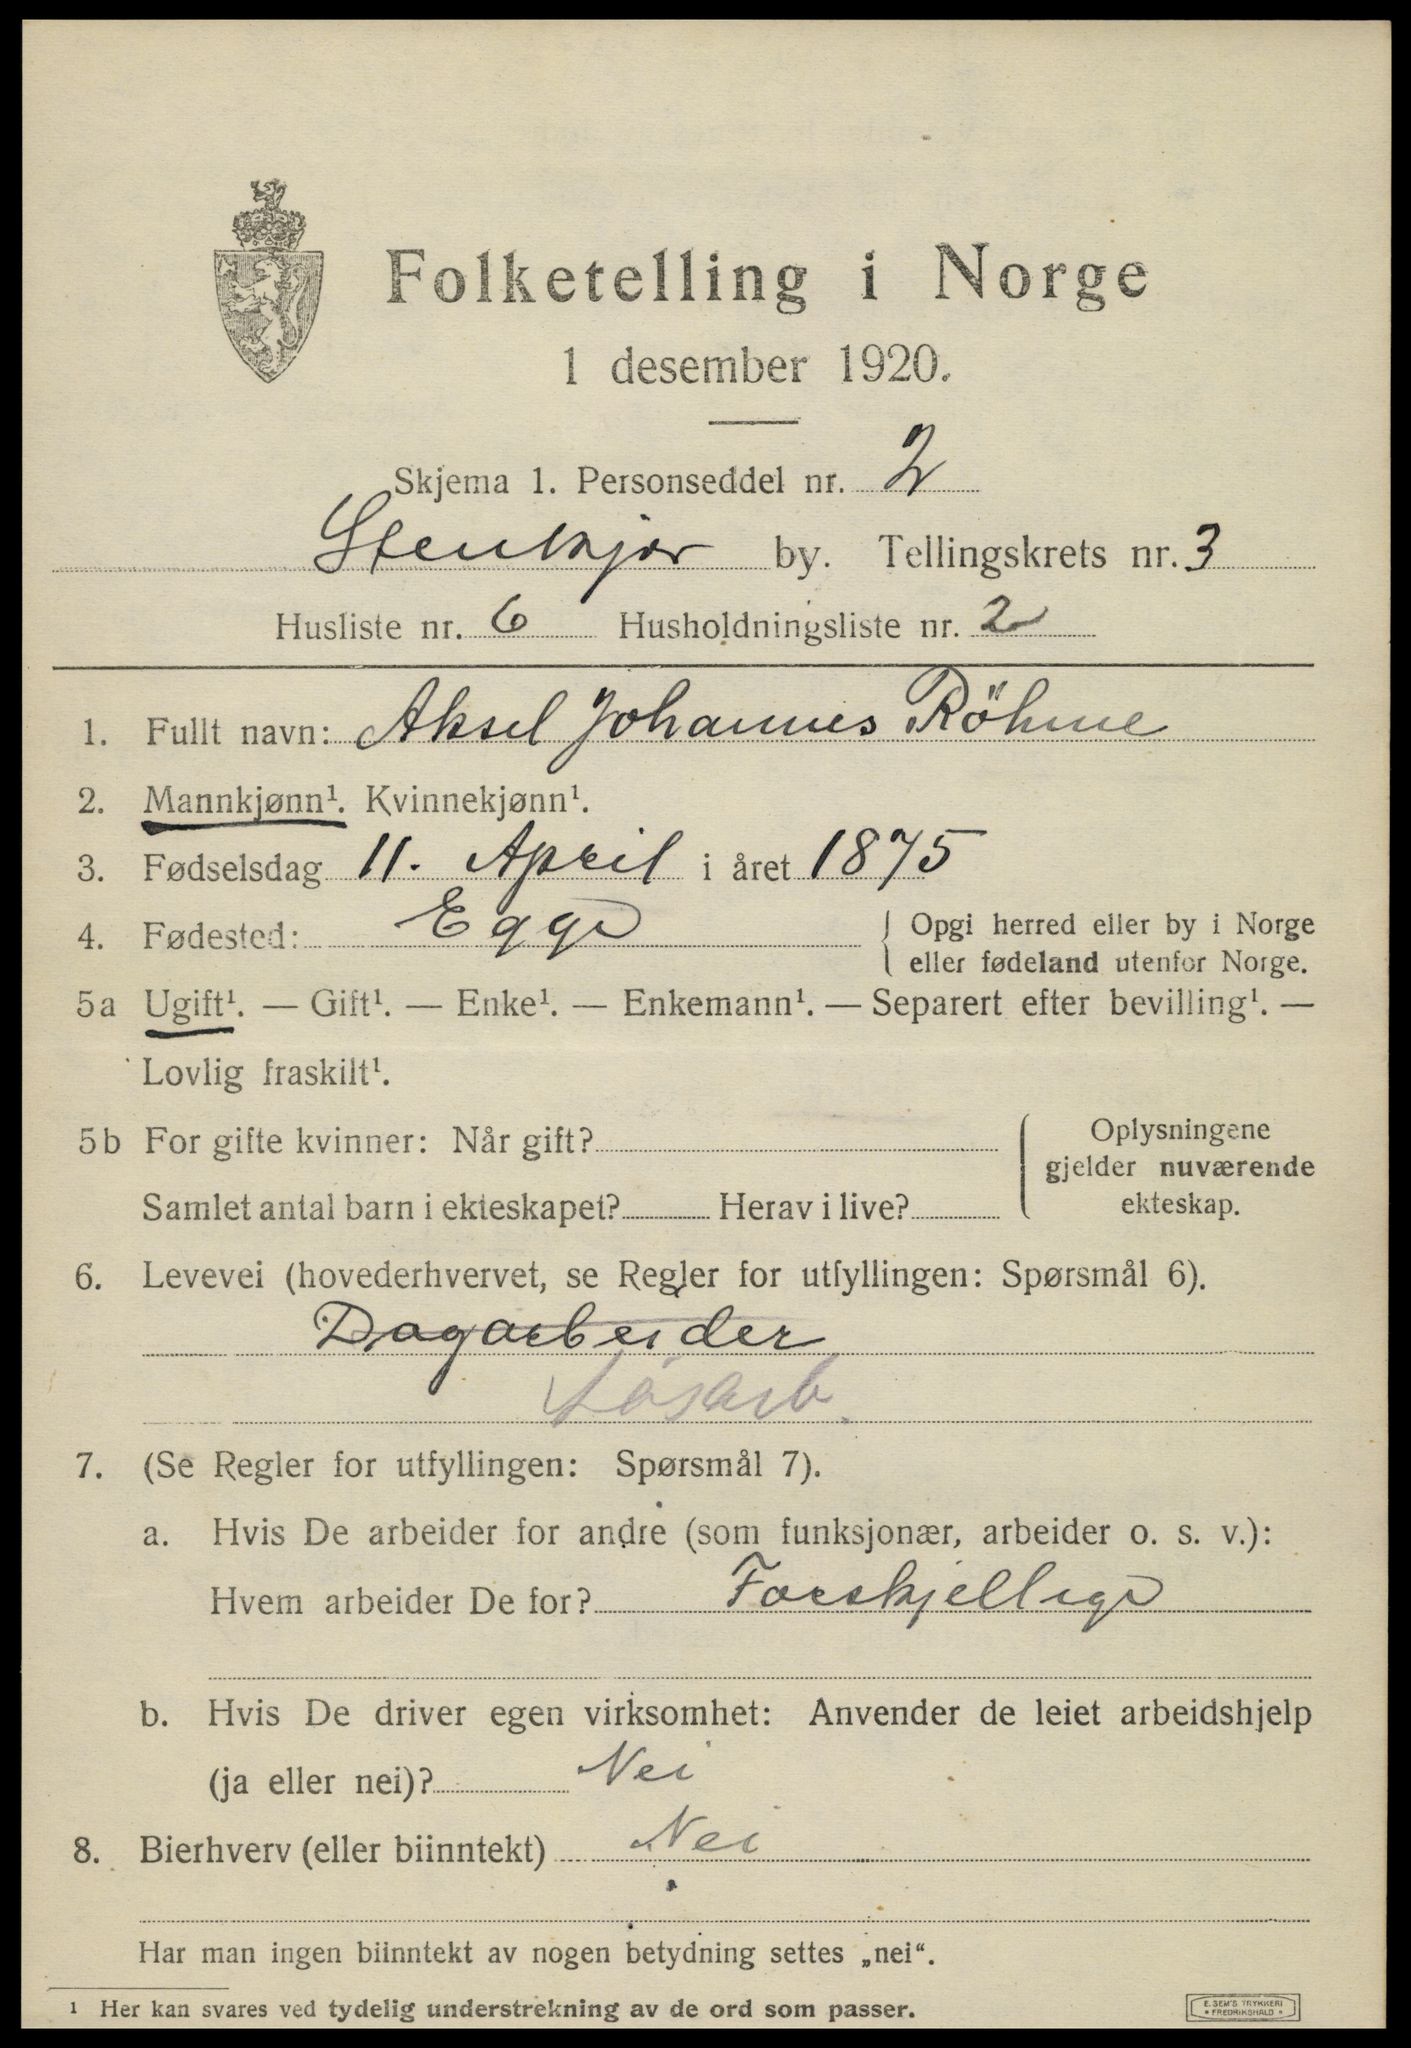 Folketelling i Norge
1 desember 1920.
Skjema 1. Personseddel nr. 2
Stenkjær by. Tellingskrets nr. 3
Husliste nr. 6 Husholdningsliste nr. 2
1. Fullt navn: Aksel Johannes Röhme
2. Mannkjønn¹. Kvinnekjønn¹.
3. Fødselsdag 11. April i året 1875
4. Fødested: Egge { Opgi herred eller by i Norge
eller fødeland utenfor Norge.
5a Ugift¹. — Gift¹. — Enke¹. — Enkemann¹. — Separert efter bevilling¹. —
Lovlig fraskilt¹.
5b For gifte kvinner: Når gift?
Samlet antal barn i ekteskapet? Herav i live?
Oplysningene
gjelder nuværende
ekteskap.
6. Levevei (hovederhvervet, se Regler for utfyllingen: Spørsmål 6).
Dagarbeider
Løsarb.
7. (Se Regler for utfyllingen: Spørsmål 7).
a. Hvis De arbeider for andre (som funksjonær, arbeider o. s. v.):
Hvem arbeider De for? Forskjellige
b. Hvis De driver egen virksomhet: Anvender de leiet arbeidshjelp
(ja eller nei)? Nei
8. Bierhverv (eller biinntekt) Nei
Har man ingen biinntekt av nogen betydning settes „nei“.
¹ Her kan svares ved tydelig understrekning av de ord som passer.
E. SEM'S TRYKKERI
• FREDRIKSHALD •